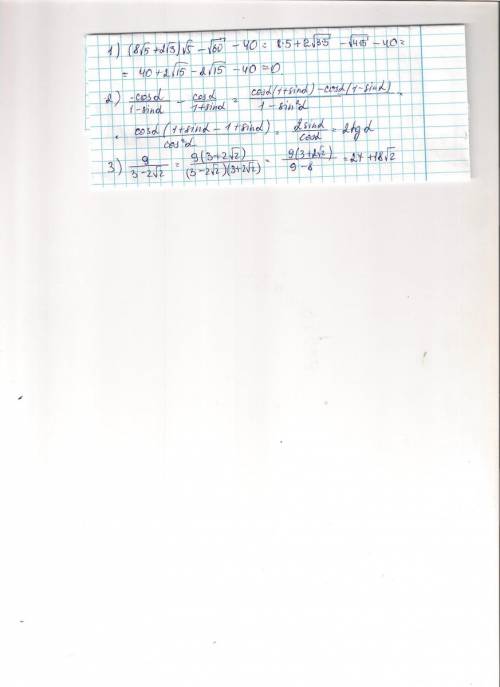 1) (8√5+2√3)√5 - √60 - 40 = 8·5+2√3·5 - √4·15 - 40 =
= 40+2√15 - 2√15 - 40 = 0
2) -cosα/1-sinα - cosα/1+sinα = cosα(1+sinα)-cosα(1-sinα)/1-sin²α =
= cosα(1+sinα-1+sinα)/cos²α = 2sinα/cosα = 2tgα
3) 9/3-2√2 = 9(3+2√2)/(3-2√2)(3+2√2) = 9(3+2√2)/9-8 = 27+18√2